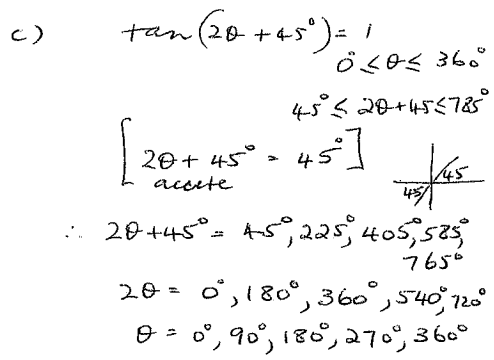 c) tan(2θ + 45°) = 1
0° ≤ θ ≤ 360°
45° ≤ 2θ+45 ≤ 785°
[2θ + 45° = 45°]
accute
45
45
∴ 2θ+45° = 45°, 225°, 405°, 585°,
765°
2θ = 0°, 180°, 360°, 540°, 720°
θ = 0°, 90°, 180°, 270°, 360°